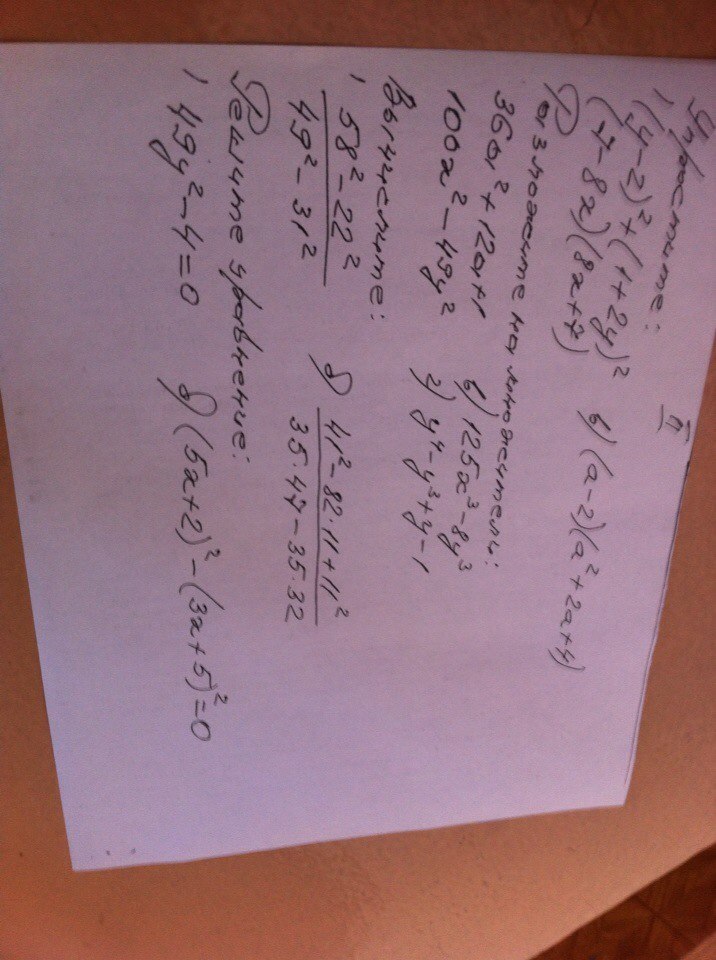 II
Упростите:
) (y-2)² + (1+2y)² в) (a-2)(a²+2a+4)
(7-8x)(8x+7)
Разложите на множители:
36a² + 12a+1 в) 125x³ - 8y³
100x² - 49y² г) y⁴ - y³ + y - 1
Вычислите:
) 58² - 22² / 49² - 31² б) 41² - 82·11 + 11² / 35·47 - 35·32
Решите уравнение:
) 49y² - 4 = 0 б) (5x+2)² - (3x+5)² = 0